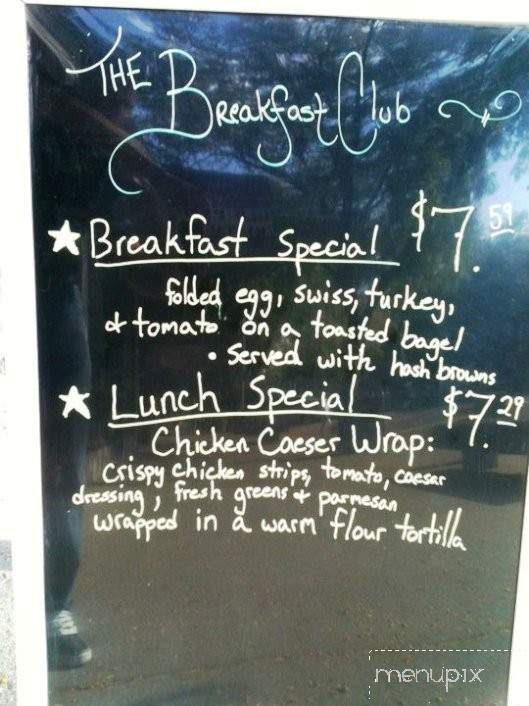 THE Breakfast Club
★ Breakfast Special $7.59
folded egg, swiss, turkey,
& tomato on a toasted bagel
• Served with hash browns
★ Lunch Special $7.29
Chicken Caeser Wrap:
crispy chicken strips, tomato, caesar
dressing, fresh greens & parmesan
wrapped in a warm flour tortilla
menupix